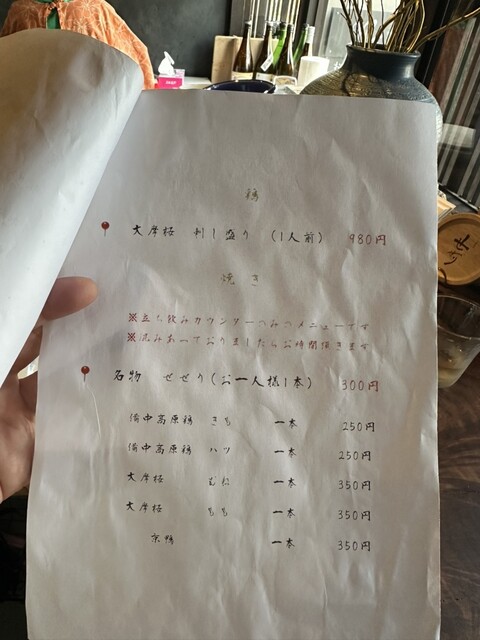 鶏
大摩桜 刺し盛り (1人前) 980円
焼き
※立ち飲みカウンターのみのメニューです
※混みあっておりましたらお時間頂きます
名物 せせり(お一人様1本) 300円
備中高原鶏 きも 一本 250円
備中高原鶏 ハツ 一本 250円
大摩桜 むね 一本 350円
大摩桜 もも 一本 350円
京鴨 一本 350円